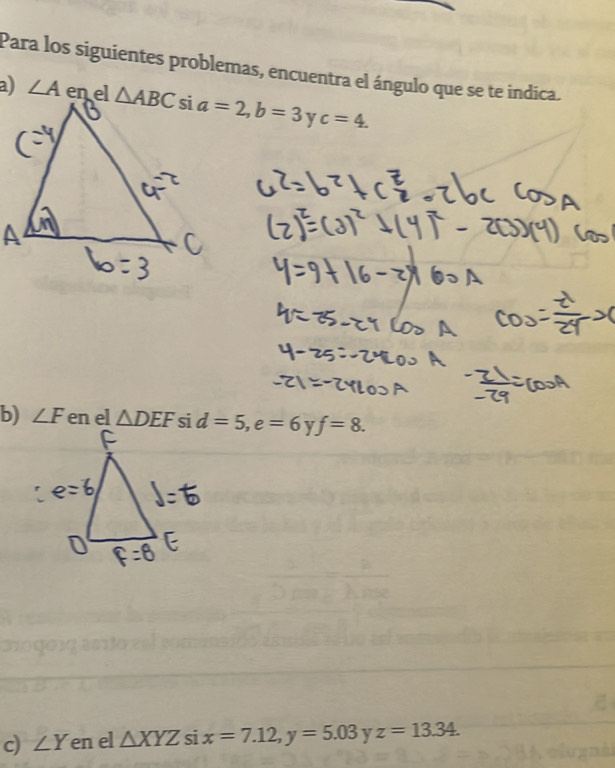 Para los siguientes problemas, encuentra el ángulo que se te indica.
a) ∠A en el △ABC si a = 2, b = 3 y c = 4.
B
C=4
a=2
A
C
b=3
a²=b²+c²-2bc cosA
(2)²=(3)²+(4)²-2(3)(4) cos
4=9+16-24 cosA
4=25-24 cos A
4-25=-24cos A
-21=-24cosA
cos=21/24
-21/-24=cosA
b) ∠F en el △DEF si d = 5, e = 6 y f = 8.
F
e=6
d=5
D
E
F=8
c) ∠Y en el △XYZ si x = 7.12, y = 5.03 y z = 13.34.